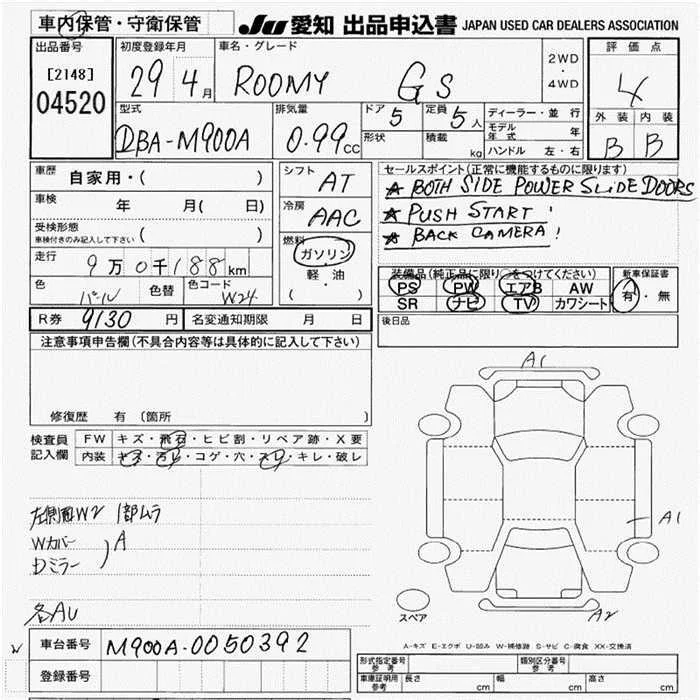 車内保管・守衛保管
JU 愛知 出品申込書 JAPAN USED CAR DEALERS ASSOCIATION
出品番号
[2148]
04520
初度登録年月
29年4月
車名・グレード
ROOMY GS
2WD
・
4WD
評価点
4
外装 内装
B B
型式
DBA-M900A
排気量
0.99cc
ドア 5
定員 5人
形状
積載 kg
ディーラー・並行
モデル年式 年
ハンドル 左・右
車歴
自家用・( )
車検 年 月( 日)
受検形態
車検付きのみ記入して下さい ( )
走行
9万0千188km
色 パール 色替 色コード W24
シフト AT
冷房 AAC
燃料
ガソリン
軽油
( ・ )
セールスポイント(正常に機能するものに限ります)
★ BOTH SIDE POWER SLIDE DOORS
★ PUSH START !
★ BACK CAMERA !
装備品(純正品に限り○をつけてください)
PS PW エアB AW
SR ナビ TV カワシート
新車保証書
有・無
R券 9130円 名変通知期限 月 日
後日品
注意事項申告欄(不具合内容等は具体的に記入して下さい)
修復歴 有 (箇所 )
検査員記入欄
FW キズ・飛石・ヒビ割・リペア跡・X要
内装 キズ・汚レ・コゲ・穴・スレ・キレ・破レ
A1
A1
A2
左側面W2 1部ムラ
Wカバー
Dミラー ) A
各AU
スペア
A-キズ E-エクボ U-凹み W-補修跡 S-サビ C-腐食 XX-交換済
車台番号 M900A-0050392
登録番号
形式指定番号 参考
類別区分番号 参考
車庫証明用 参考 長さ cm 幅 cm 高さ cm